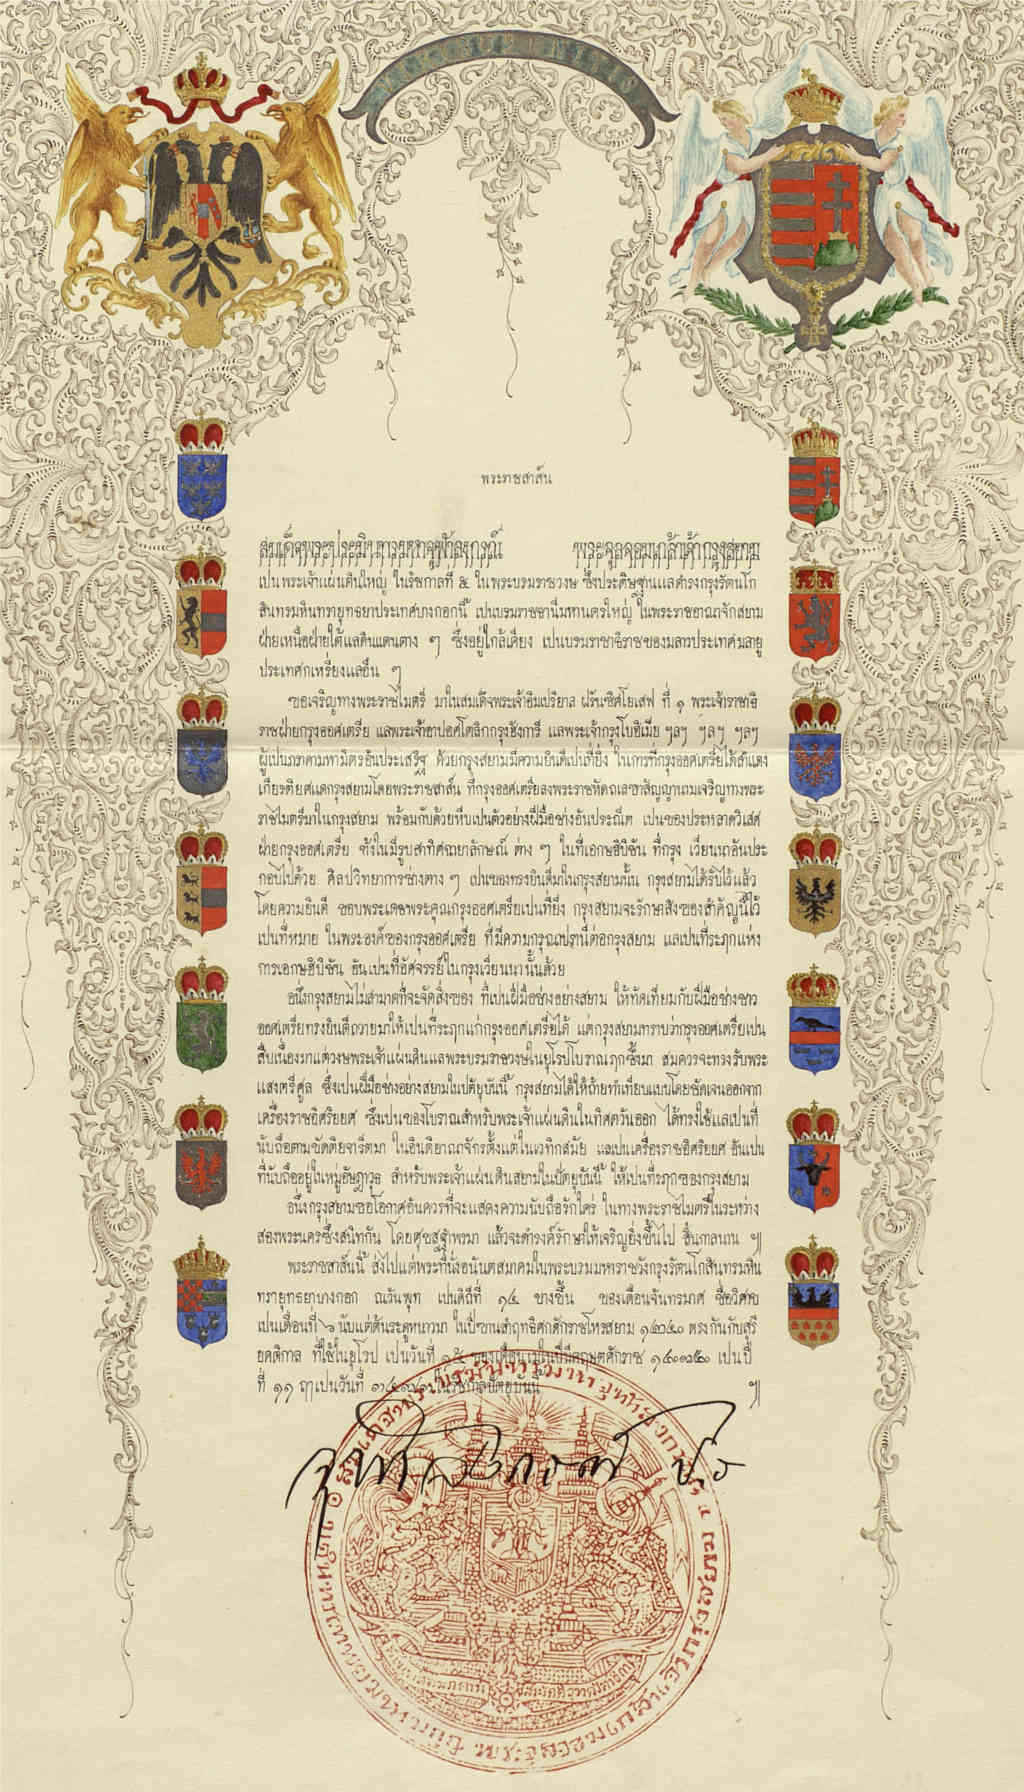 พระราชสาส์น
สมเด็จพระปรมินทรมหาจุฬาลงกรณ์ พระจุลจอมเกล้าเจ้ากรุงสยาม
เปนพระเจ้าแผ่นดินใหญ่ ในรัชกาลที่ ๕ ในพระบรมราชวงษ ซึ่งประดิษฐานแลดำรงกรุงรัตนโก
สินทรมหินทรายุทธยาประเทศบางกอกนี้ เปนบรมราชธานีมหานครใหญ่ ในพระราชอาณาจักสยาม
ฝ่ายเหนือฝ่ายใต้แลดินแดนต่าง ๆ ซึ่งอยู่ใกล้เคียง เปนบรมราชาธิราชของมลาวประเทศมลายู
ประเทศกเหรี่ยงแลอื่น ๆ
ขอเจริญทางพระราชไมตรี มาในสมเด็จพระเจ้าอิมเปริยาล ฝรันซิศโยเสฟ ที่ ๑ พระเจ้าราชาธิ
ราชฝ่ายกรุงออศเตรีย แลพระเจ้าอาปอศโตลิกกรุงฮังการี แลพระเจ้ากรุงโบฮิเมีย ฯลฯ ฯลฯ ฯลฯ
ผู้เปนภาดามหามิตรอันประเสริฐ ด้วยกรุงสยามมีความยินดีเปนที่ยิ่ง ในการที่กรุงออศเตรียได้สำแดง
เกียรติยศแด่กรุงสยามโดยพระราชสาส์น ที่กรุงออศเตรียลงพระราชหัดถเลขาสัญญาณเจริญทางพระ
ราชไมตรีมาในกรุงสยาม พร้อมกับด้วยหีบเปนตัวอย่างฝีมือช่างอันประณีต เปนของประหลาดวิเสศ
ฝ่ายกรุงออศเตรีย ทั้งในมีรูปสาทิศฉายาลักษณ์ ต่าง ๆ ในที่เอกษฮิบิชัน ที่กรุง เวียนนาอันประ
กอบไปด้วย ศิลปวิทยาการช่างต่าง ๆ เปนของทรงยินดีมาในกรุงสยามนั้น กรุงสยามได้รับไว้แล้ว
โดยความยินดี ขอบพระเดชพระคุณกรุงออศเตรียเปนที่ยิ่ง กรุงสยามจะรักษาสิ่งของสำคัญนี้ไว้
เปนที่หมาย ในพระองค์ของกรุงออศเตรีย ที่มีความกรุณาปรานีต่อกรุงสยาม แลเปนที่ระฦกแห่ง
การเอกษฮิบิชัน อันเปนที่อัศจรรย์ในกรุงเวียนนานั้นด้วย
อนึ่งกรุงสยามไม่สามาถที่จะจัดสิ่งของ ที่เปนฝีมือช่างอย่างสยาม ให้ทัดเทียมกับฝีมือช่างชาว
ออศเตรียทรงยินดีถวายมาให้เปนที่ระฦกแก่กรุงออศเตรียได้ แต่กรุงสยามทราบว่ากรุงออศเตรียเปน
สืบเนื่องมาแต่วงษพระเจ้าแผ่นดินแลพระบรมราชวงษในยุโรปโบราณฦกซึ้งมา สมควรจะทรงรับพระ
แสงตรีศูล ซึ่งเปนฝีมือช่างอย่างสยามในปัตยุบันนี้ กรุงสยามได้ให้ถ่ายทำเทียบแบบโดยชัดเจนออกจาก
เครื่องราชอิศริยยศ ซึ่งเปนของโบราณสำหรับพระเจ้าแผ่นดินในทิศตวันออก ได้ทรงใช้แลเปนที่
นับถือตามขัดติยจารีตมา ในอินดิยาณาจักรตั้งแต่ในเวทิกสมัย แลเปนเครื่องราชอิศริยยศ อันเปน
ที่นับถืออยู่ในหมู่อัษฎาวุธ สำหรับพระเจ้าแผ่นดินสยามในปัตยุบันนี้ ให้เปนที่ระฦกของกรุงสยาม
อนึ่งกรุงสยามขอโอกาศอันควรที่จะแสดงความนับถือรักใคร่ ในทางพระราชไมตรีในระหว่าง
สองพระนครซึ่งสนิทกัน โดยศุขสุฐาพรมา แล้วจะดำรงค์รักษาให้เจริญยิ่งขึ้นไป สิ้นกาลนาน ๚
พระราชสาส์นนี้ ส่งไปแต่พระที่นั่งอนันตสมาคมในพระบรมมหาราชวังกรุงรัตนโกสินทรมหิน
ทรายุทธยาบางกอก ณวันพุท เปนดิถีที่ ๑๔ ข้างขึ้น ของเดือนจันทรมาศ ชื่อวิศาข
เปนเดือนที่ ๖ นับแต่ต้นระดูหนาวมา ในปีขานสำฤทธิศกศักราชโหรสยาม ๑๒๔๐ ตรงกันกับสุริ
ยคติกาล ที่ใช้ในยุโรป เปนวันที่ ๑๕ ของเดือนเมในปีมีคฤษตศักราช ๑๘๗๘ เปนปี
ที่ ๑๑ ฤๅเปนวันที่ ในรัชกาลปัตยุบันนี้ ๚
จุฬาลงกรณ์ ปร